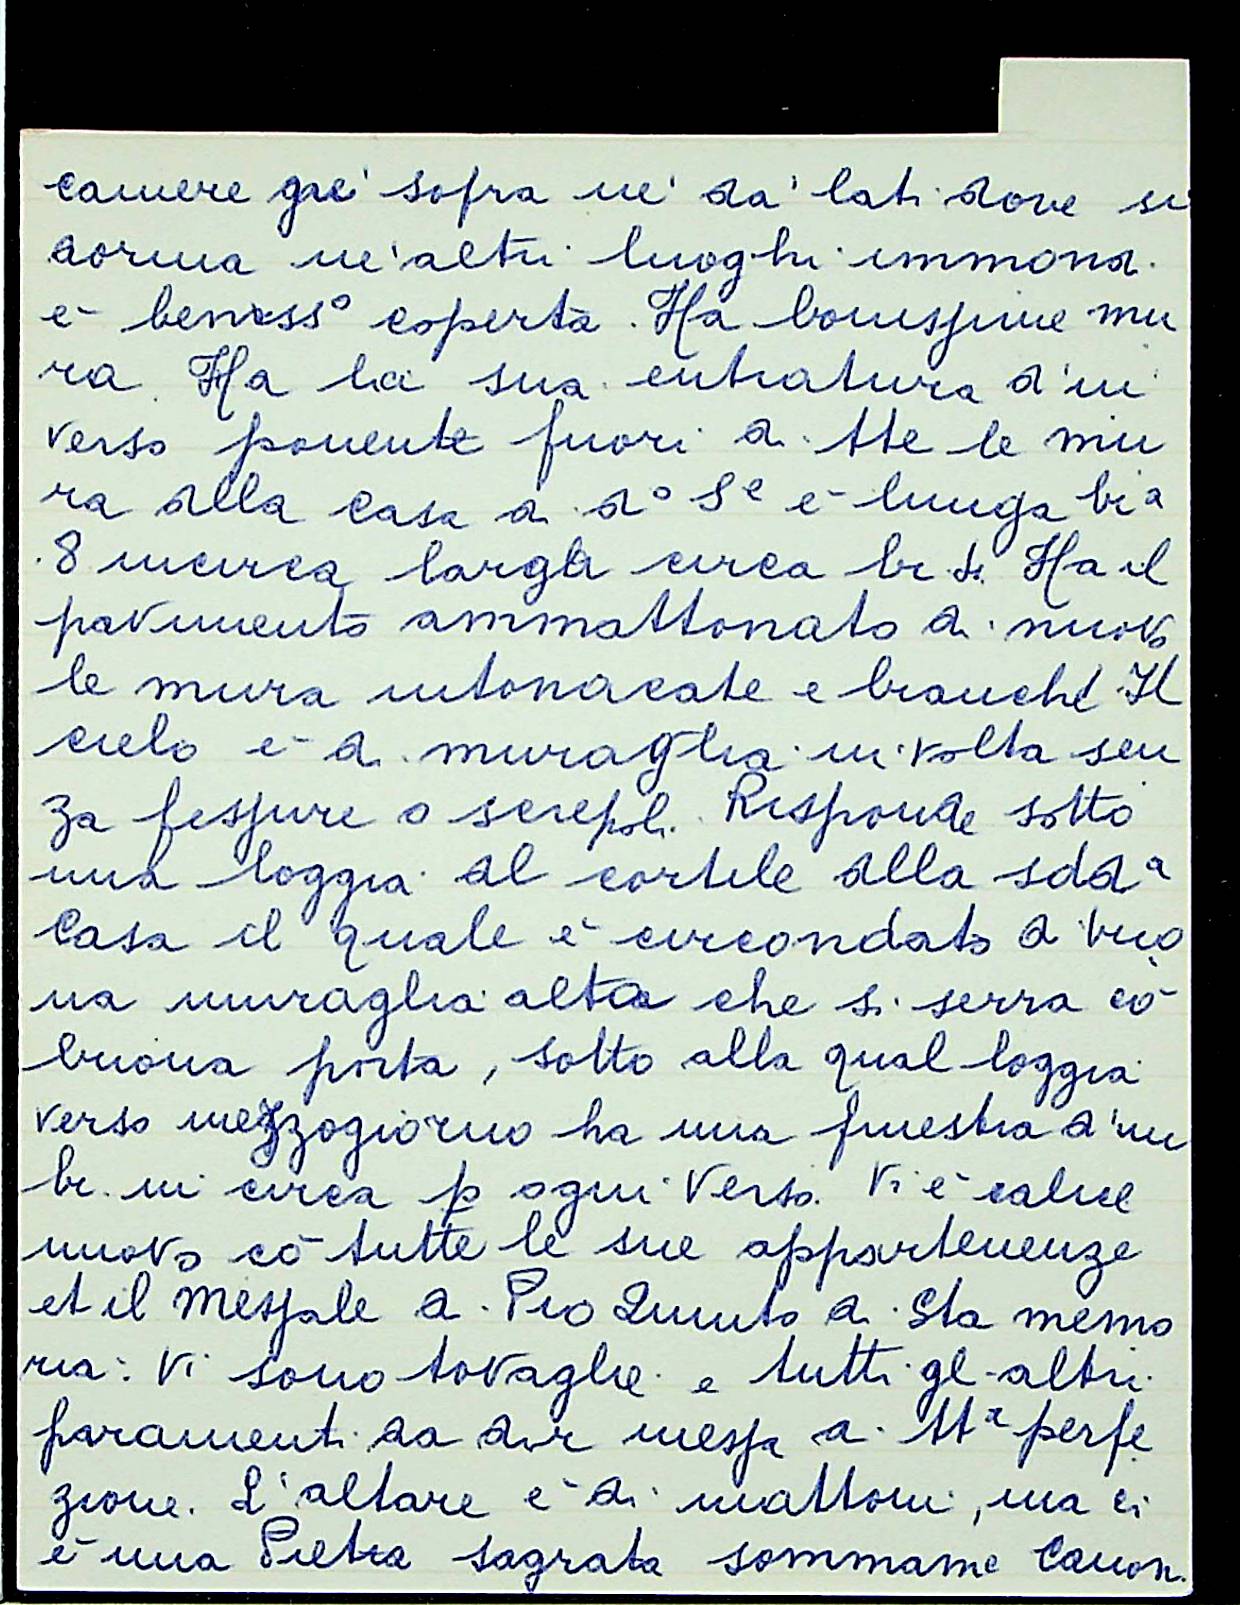 camere nè sopra nè da' lati dove si
dorma nè altri luoghi immondi.
è beniss° coperta. Ha bonissime mu
ra. Ha la sua entratura d'in
verso ponente fuori di tte le mu
ra della casa di d° Se è lunga bra
8 incirca larga circa br Ha il
pavimento ammattonato di nuovo
le mura intonacate e bianche Il
cielo è di muraglia in volta sen
za fessure o screpoli. Risponde sotto
una loggia al cortile della sdda
Casa il quale è circondato di buo
na muraglia alta che si serra cō
buona porta, sotto alla qual loggia
verso mezzogiorno ha una finestra d'un
br. in circa p ogni verso. Vi è calice
nuovo cō tutte le sue appartenenze
et il Messale di Pio Quinto di Sta memo
ria: Vi sono tovaglie e tutti gl-altri
paramenti da dir messa a tta perfe
zione. L'altare è di mattoni, ma ci
è una Pietra sagrata sommame Canon.